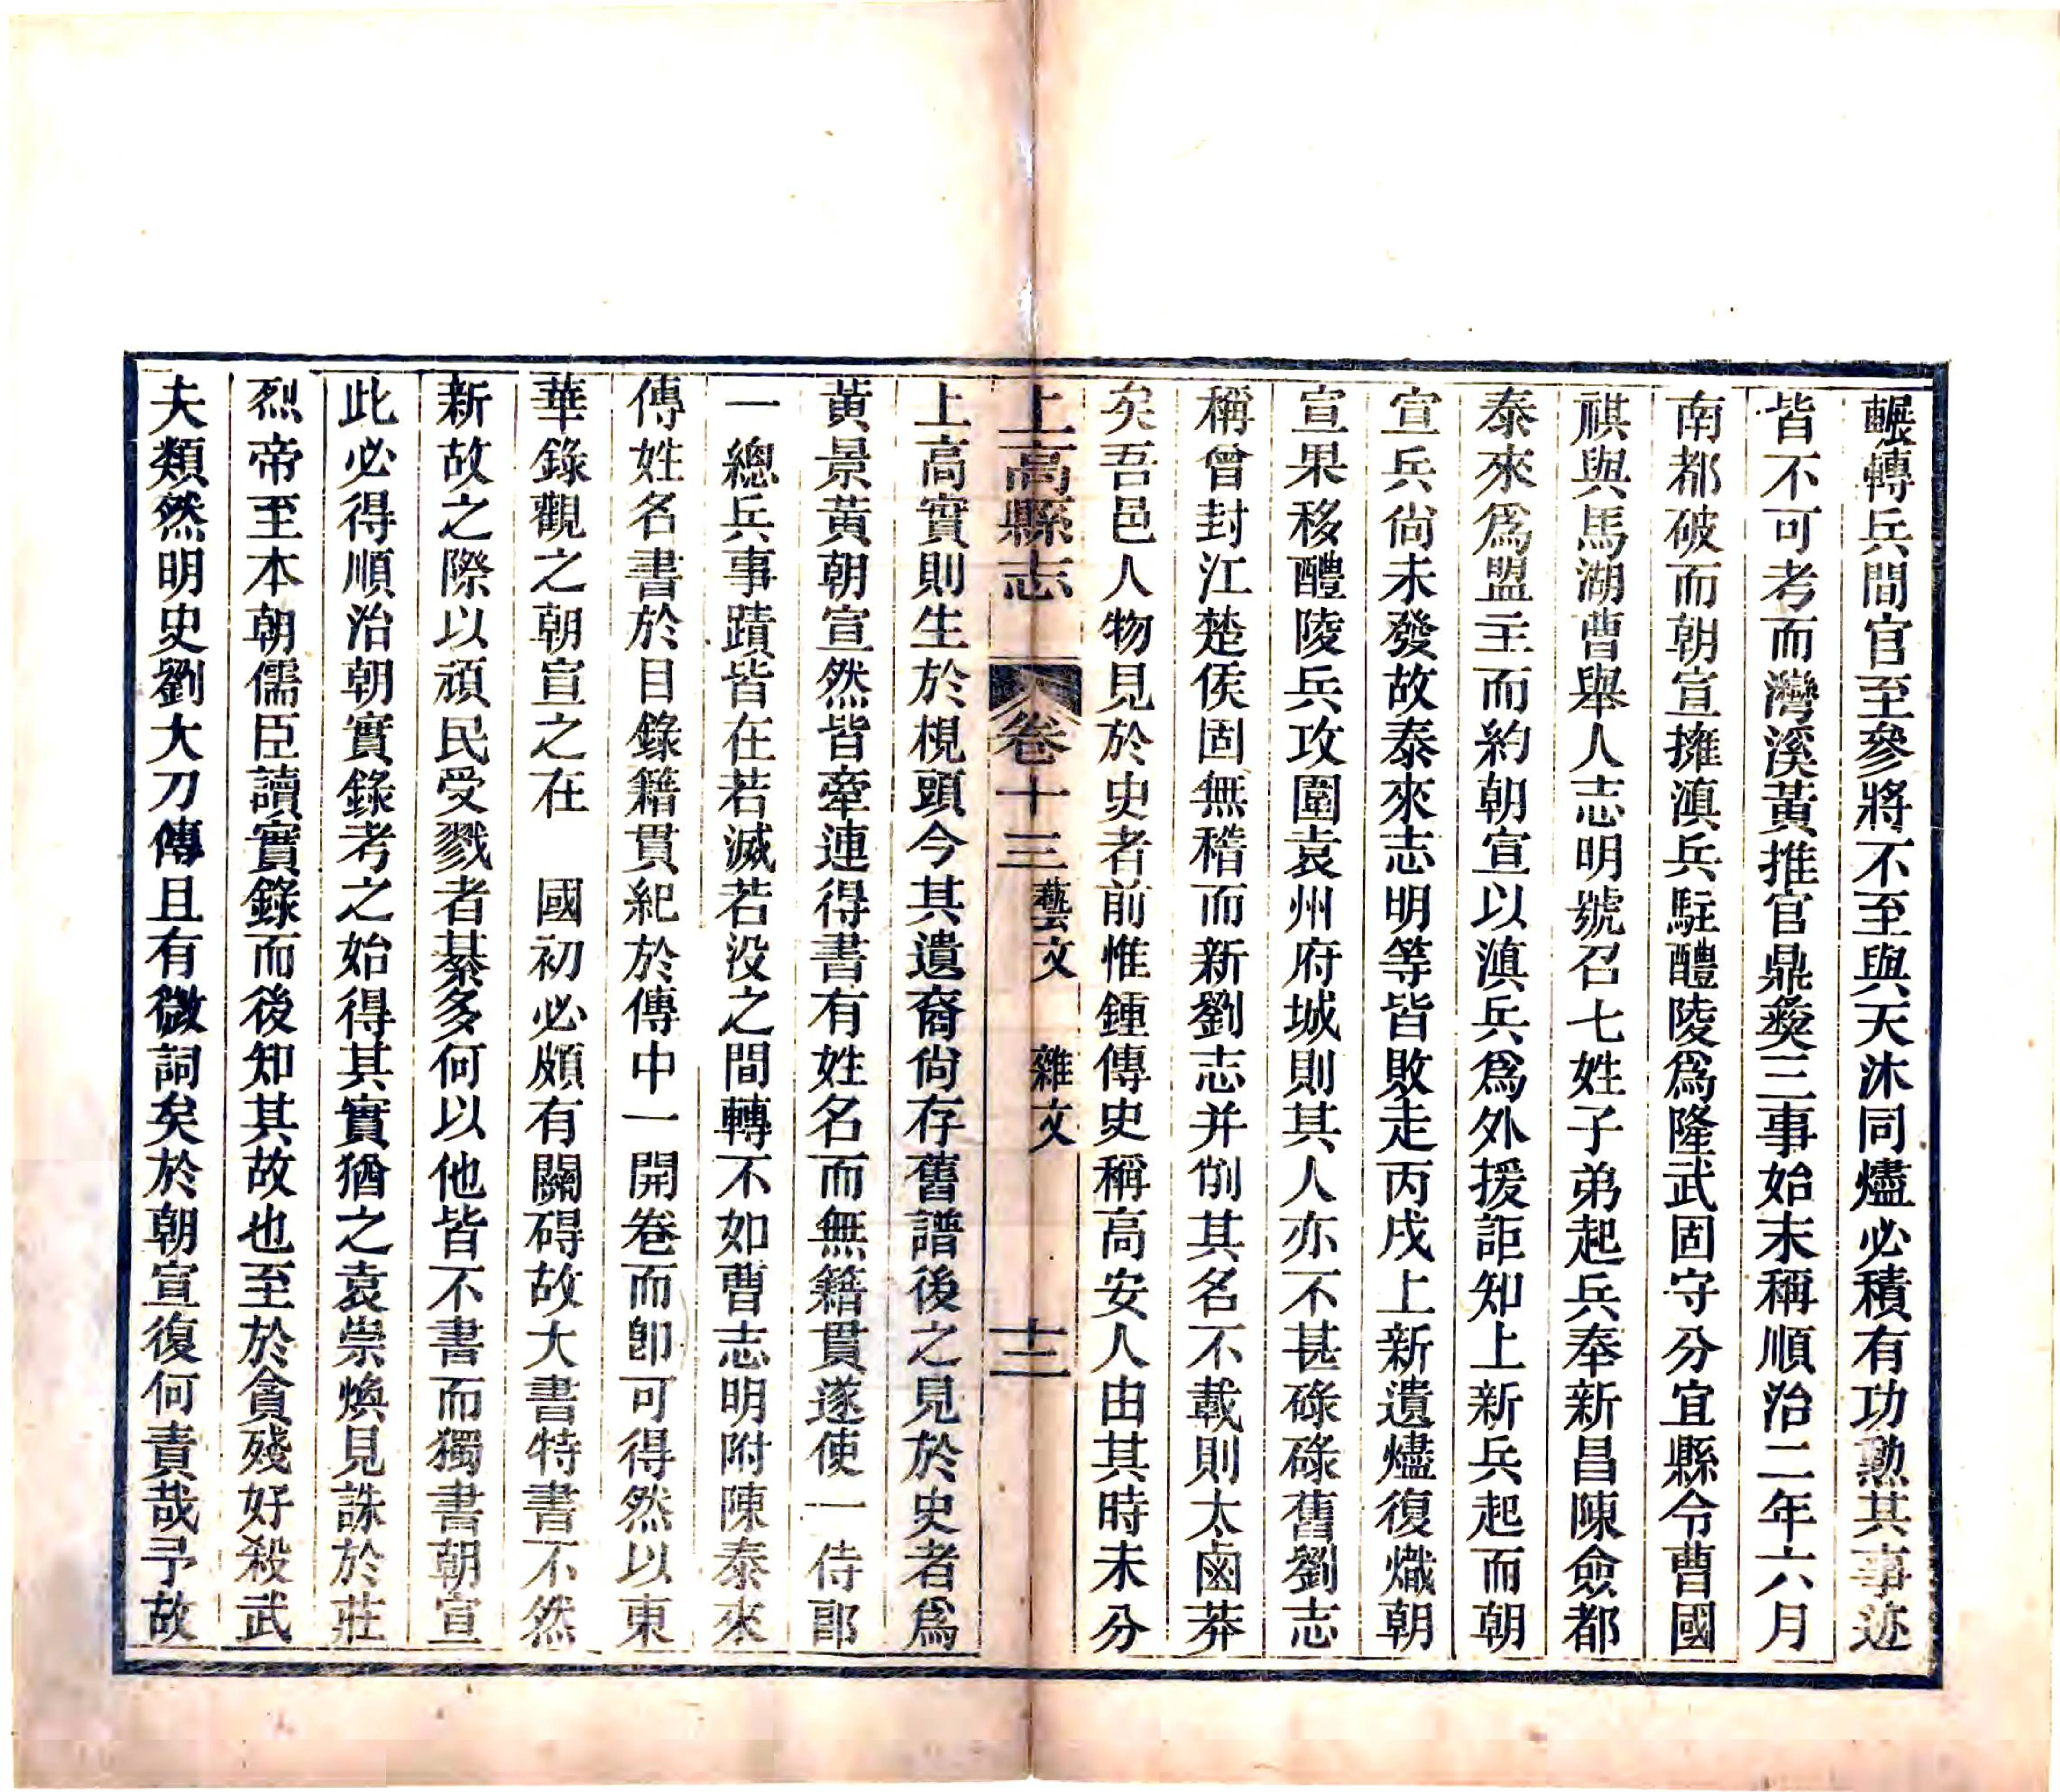 輾轉兵間官至參將不至與天沐同燼必積有功勲其事迹
皆不可考而灣溪黃推官鼎𢑱三事始末稱順治二年六月
南都破而朝宣擁滇兵駐醴陵爲隆武固守分宜縣令曹國
祺與馬湖曹舉人志明號召七姓子弟起兵奉新昌陳僉都
泰來爲盟主而約朝宣以滇兵爲外援詎知上新兵起而朝
宣兵尙未發故泰來志明等皆敗走丙戌上新遺燼復熾朝
宣果移醴陵兵攻圍袁州府城則其人亦不甚碌碌舊劉志
稱曾封江楚侯固無稽而新劉志并削其名不載則太鹵莽
矣吾邑人物見於史者前惟鍾傳史稱高安人由其時未分
上高縣志 卷十三 藝文 雜文 十三
上高實則生於梘頭今其遺裔尙存舊譜後之見於史者爲
黃景黃朝宣然皆牽連得書有姓名而無籍貫遂使一侍郎
一總兵事蹟皆在若滅若没之間轉不如曹志明附陳泰來
傳姓名書於目錄籍貫紀於傳中一開卷而卽可得然以東
華錄觀之朝宣之在 國初必頗有關碍故大書特書不然
新故之際以頑民受戮者綦多何以他皆不書而獨書朝宣
此必得順治朝實錄考之始得其實猶之袁崇煥見誅於莊
烈帝至本朝儒臣讀實錄而後知其故也至於貪殘好殺武
夫類然明史劉大刀傳且有微詞矣於朝宣復何責哉予故